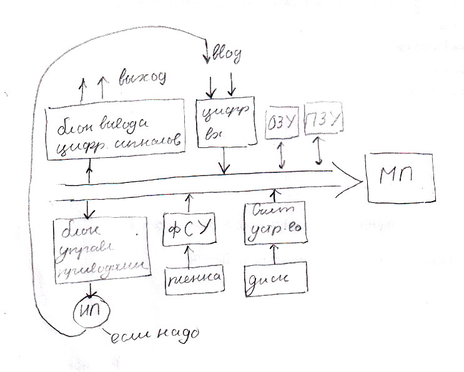 ввод
выход
блок вывода
цифр. сигналов
цифр
вх
ОЗУ
ПЗУ
МП
блок
управл
приводами
ФСУ
Счит
устр-во
пленка
диск
ИП
если надо